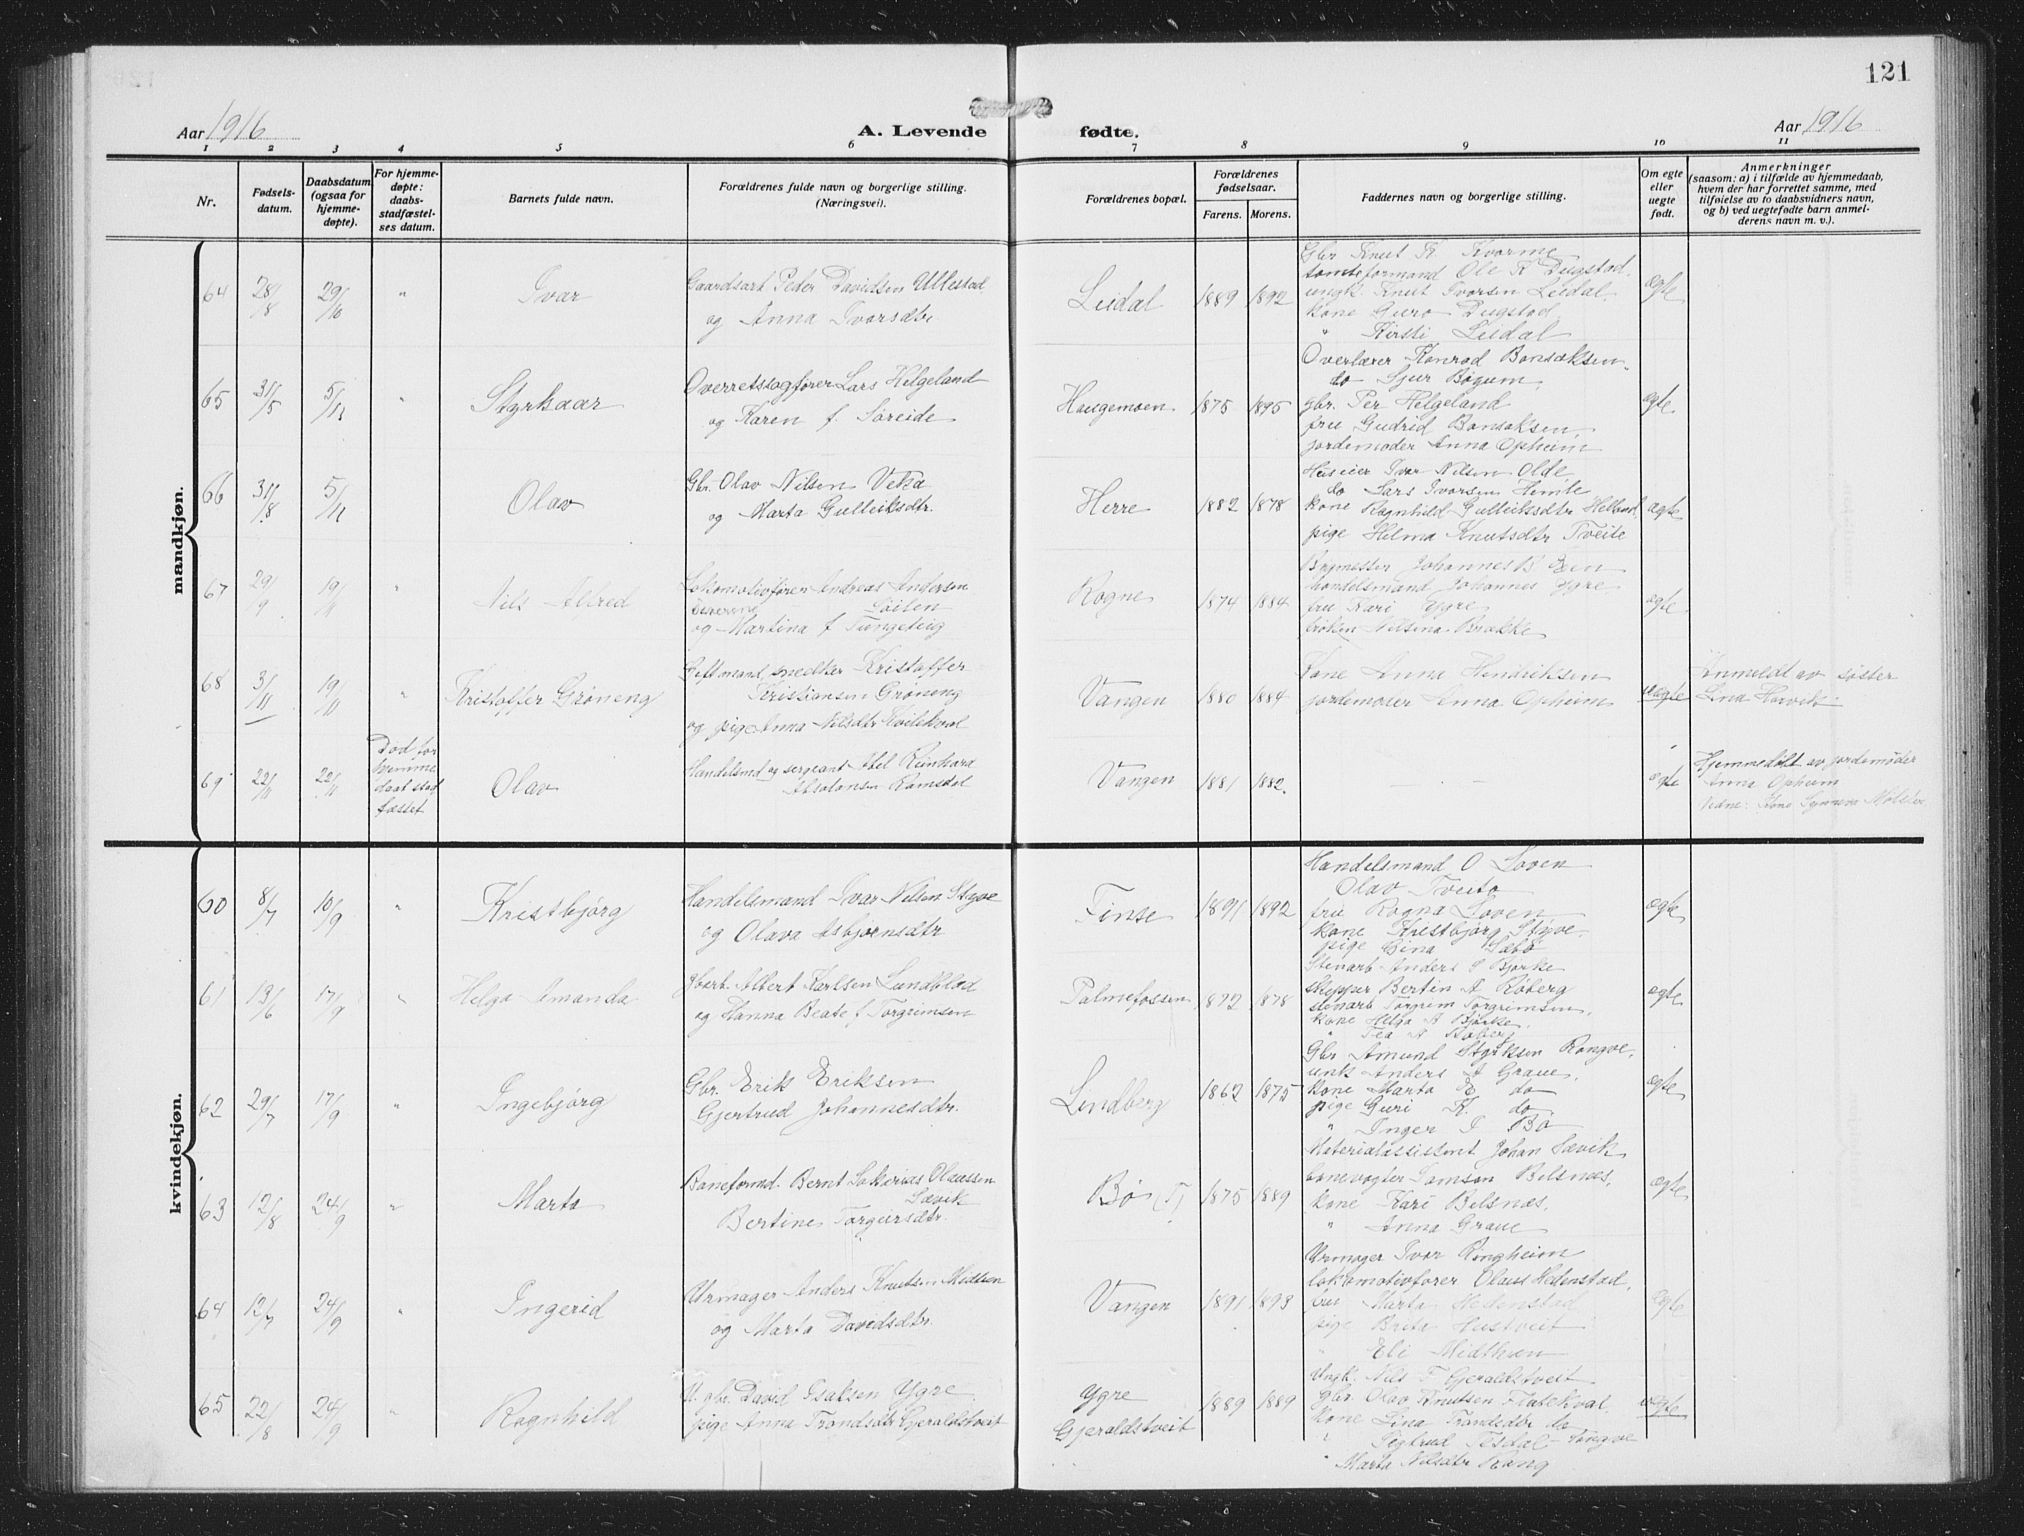 121
Aar 1916
A. Levende fødte.
Aar 1916
1 2 3 4 5 6 7 8 9 10 11
Nr.
Fødsels-
datum.
Daabsdatum
(ogsaa for
hjemme-
døpte).
For hjemme-
døpte:
daabs-
stadfæstel-
ses datum.
Barnets fulde navn.
Forældrenes fulde navn og borgerlige stilling.
(Næringsvei).
Forældrenes bopæl.
Forældrenes
fødselsaar.
Farens. Morens.
Faddernes navn og borgerlige stilling.
Om egte
eller
uegte
født.
Anmerkninger
(saasom: a) i tilfælde av hjemmedaab,
hvem der har forrettet samme, med
tilføielse av to daabsvidners navn,
og b) ved uegtefødte barn anmel-
derens navn m. v.).
mandkjøn.
64 28/8 29/10 " Ivar
Gaardsarb Peder Davidsen Ullestad
og Anna Ivarsdtr
Leidal 1889 1892
Gbr Knut K Kvarme
tomteformand Ole K Dugstad.
ungk. Knut Ivarsen Leidal
kone Guro Dugstad
" Kirsti Leidal
egte
65 31/5 5/11 " Styrkaar
Overretssagfører Lars Helgeland
og Karen f. Søreide
Haugemoen 1875 1895
Overlærer Konrad Bonsaksen
do Sjur Bøgum
gbr. Per Helgeland
fru Gudrid Bonsaksen
jordemoder Anna Opheim
egte
66 31/8 5/11 Olav
Gbr. Olav Nilsen Veka
og Marta Gulleiksdtr.
Herre 1882 1878
Huseier Ivar Nilsen Olde
do Lars Ivarsen Himle
kone Ragnhild Gulleiksdtr Helland
pige Helma Knutsdtr Tveite
egte
67 29/9 19/11 " Nils Alfred
Lokomotivfører Andreas Andersen
Søiten
og Martina f Tungeteig
Rogne 1874 1884
Johannes B
handelsmand Johannes Ygre
fru Kari Ygre
frøken Nilsina Brække
egte
68 3/11 19/11 " Kristoffer Grøneng
Gift mand, snedker Kristoffer
Kristiansen Grøneng
og pige Anna Nilsdtr Kvilekval
Vangen 1880 1884
Kone Anna Hendriksen
jordemoder Anna Opheim
uegte
Anmeldt av søster
Lina
69 22/11 22/11
Død før
hjemme
daab stad
fæstet
Olav
Handelsmd og sergeant Abel Reinhard
Absalonsen Ramsdal
Vangen 1881 1882.
— —
egte
Hjemmedøbt av jordemoder
Anna Opheim
kvindekjøn.
60 8/7 10/9 " Kristbjørg
Handelsmand Ivar Nilsen Styve
og Olava Asbjørnsdtr
Finse 1891 1892
Handelsmand O Loven
Olav Tveito
fru Ragna Loven
kone Kristbjørg Styve.
pige Gina Sæbø
egte
61 13/6 17/9 " Helga Amanda
Jbarb. Albert Karlsen Lundblad
og Hanna Beate f Torgrimsen
Palmefossen 1872 1878
Stenarb Anders S Bjørke
skipper Bertin A Røberg
stenarb Torgrim Torgrimsen.
kone Helga A Bjørke.
" Tea A
egte
62 29/7 17/9 " Ingebjørg
Gbr. Erik Eriksen
Gjertrud Johannesdtr.
Lindberg 1862 1875
Gbr Amund Styrksen Rongve,
unk Anders A Graue,
kone Marta E do
pige Guri K. do.
" Inger I Bø
egte
63 12/8 24/9 " Marta
Baneformd. Bernt Sakarias Olaussen
Sævik
Bertine Torgeirsdtr.
Bø (T) 1875 1889
Materialassistent Johan Sævik
banevogter Samson Bilsnæs,
kone Kari Bilsnæs,
" Anna Graue
egte
64 12/7 24/9 " Ingerid
Urmager Anders Knutsen Midtun
og Marta Davidsdtr.
Vangen 1891 1893
Urmager Ivar Ringheim
lokomotivfører Olaus Hedenstad,
fru Marta Hedenstad
pige Brita Hustveit
" Eli Midthun
egte
65 22/8 24/9 " Ragnhild
U. gbr. David Isaksen Ygre
pige Anna Trondsdtr Gjeraldstveit
Ygre
Gjeraldstveit
1889 1889
Ungk. Nils T Gjeraldstveit
gbr. Olav Knutsen Flatekval,
kone Lina Trondsdtr do
" Sigtrud Tesdal
" Marta Nilsdtr Rang
uegte